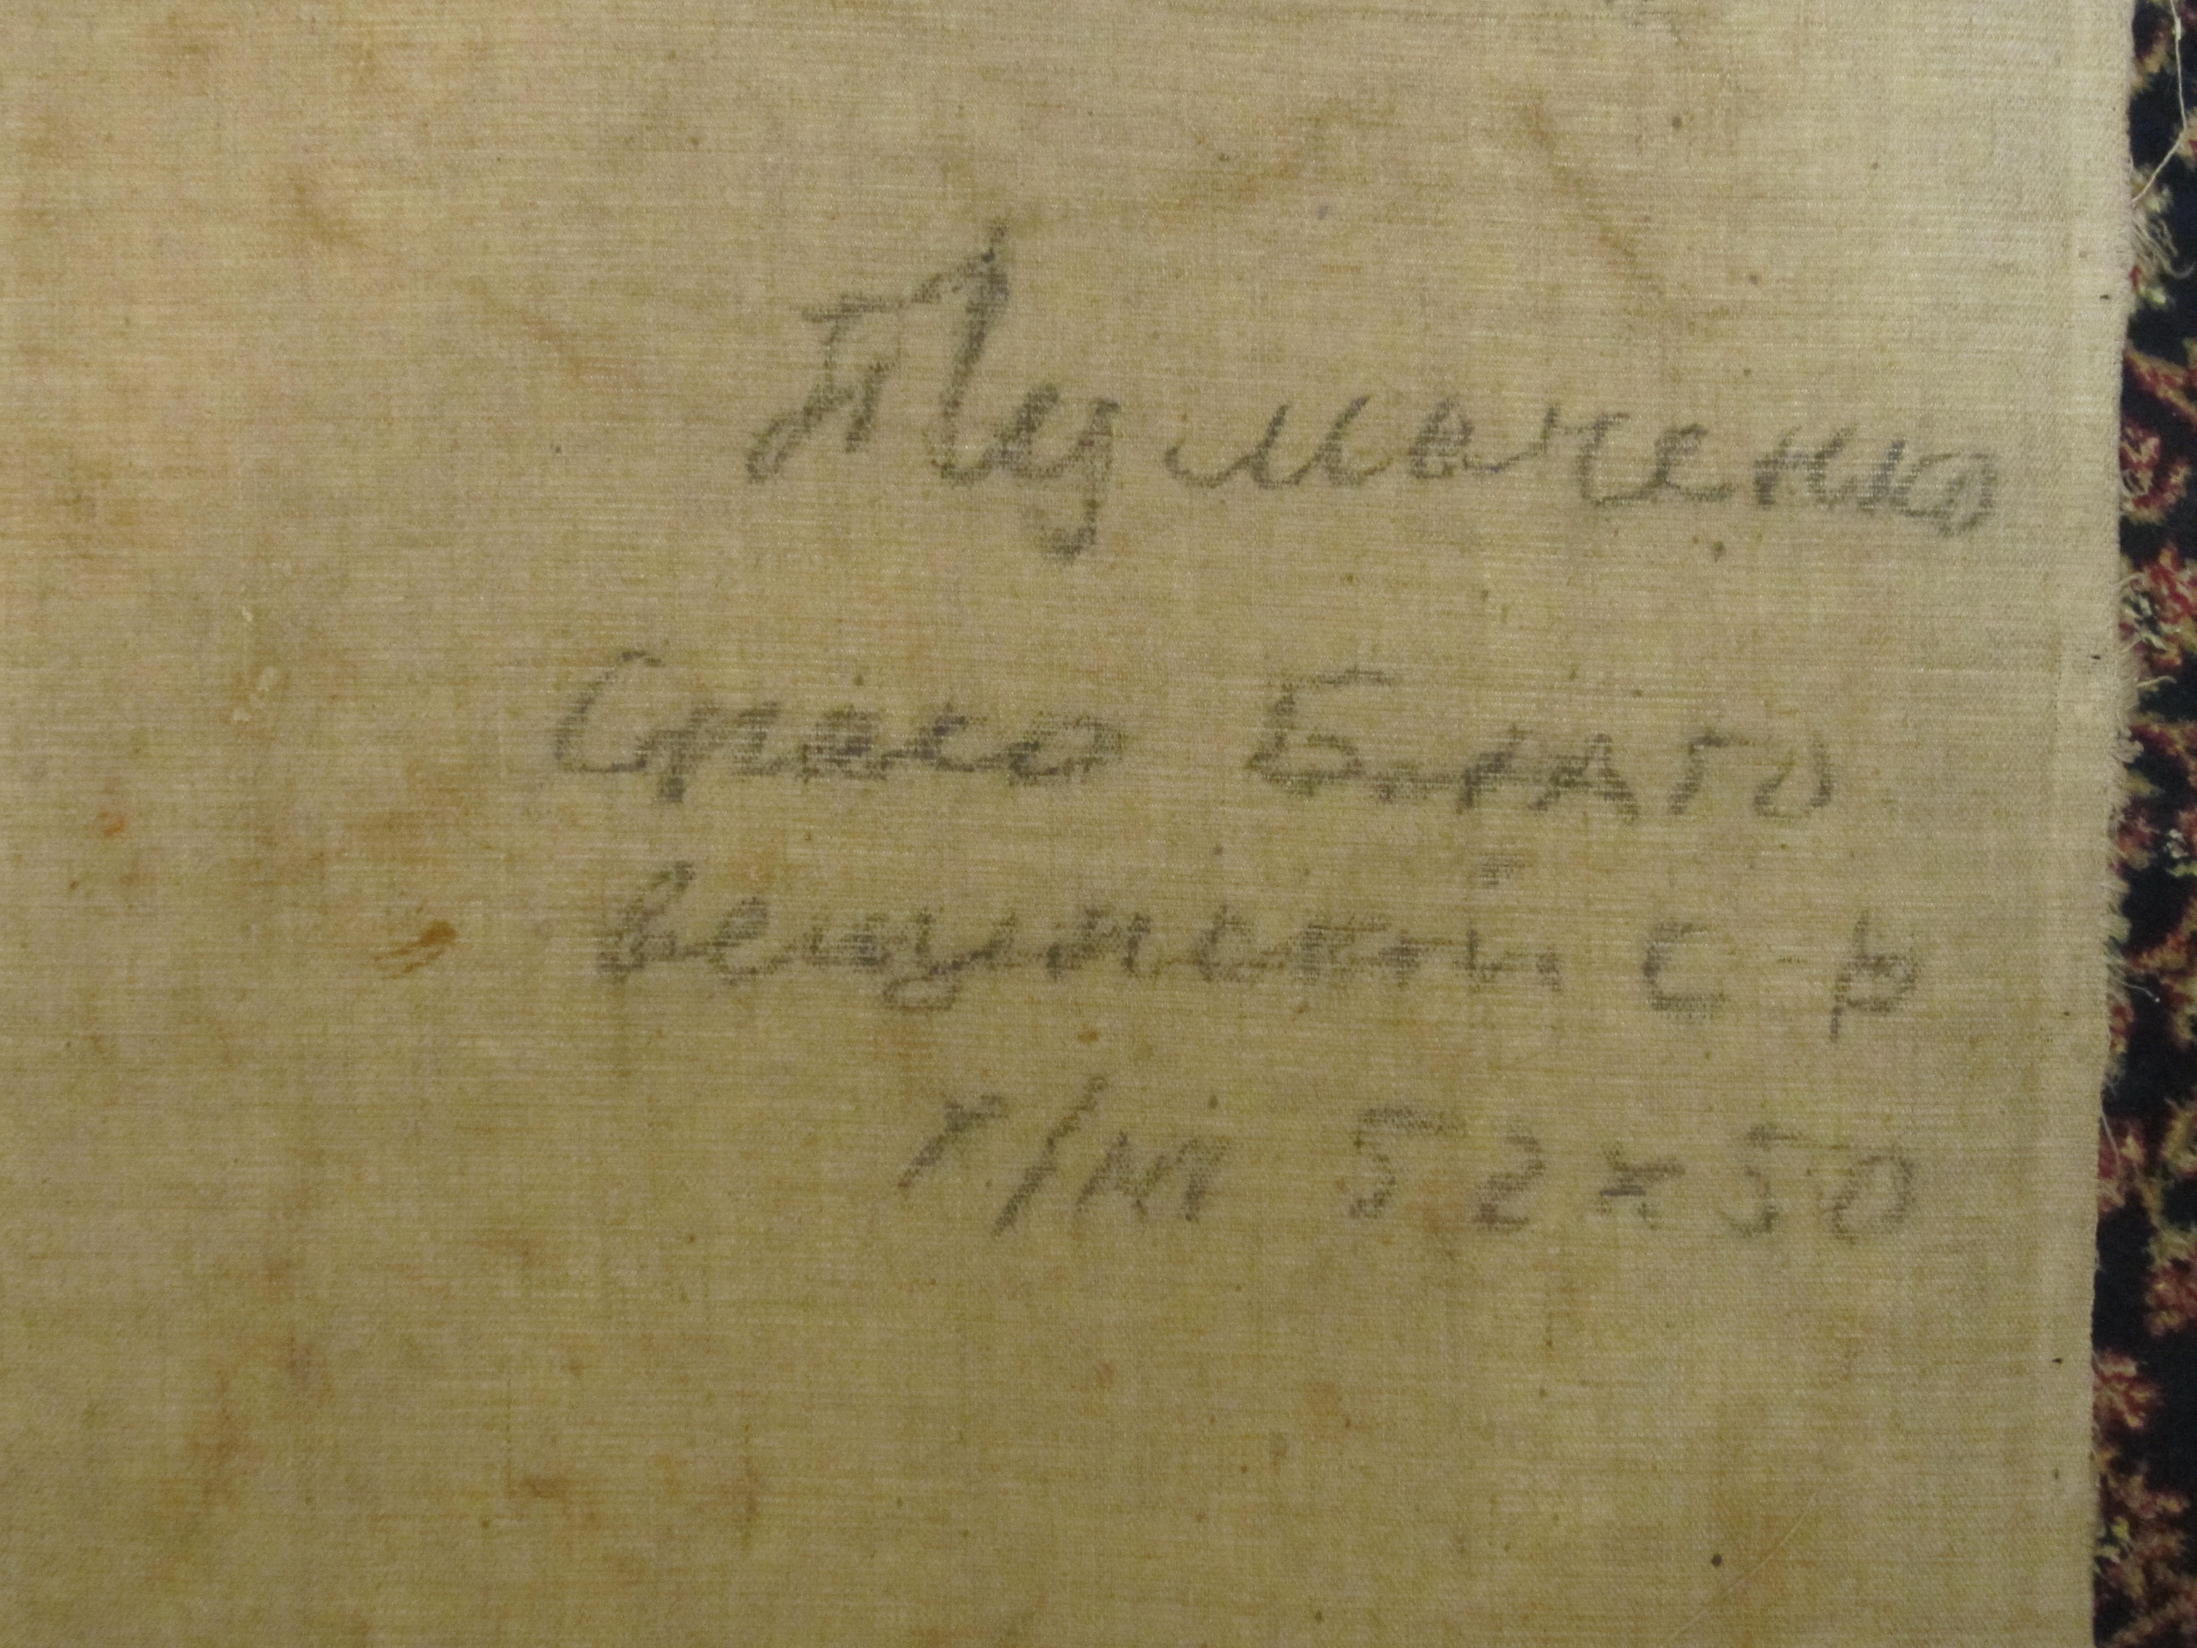 Тузмаченко
Спасо Благо
вещенской с-р
х/м 52 x 50